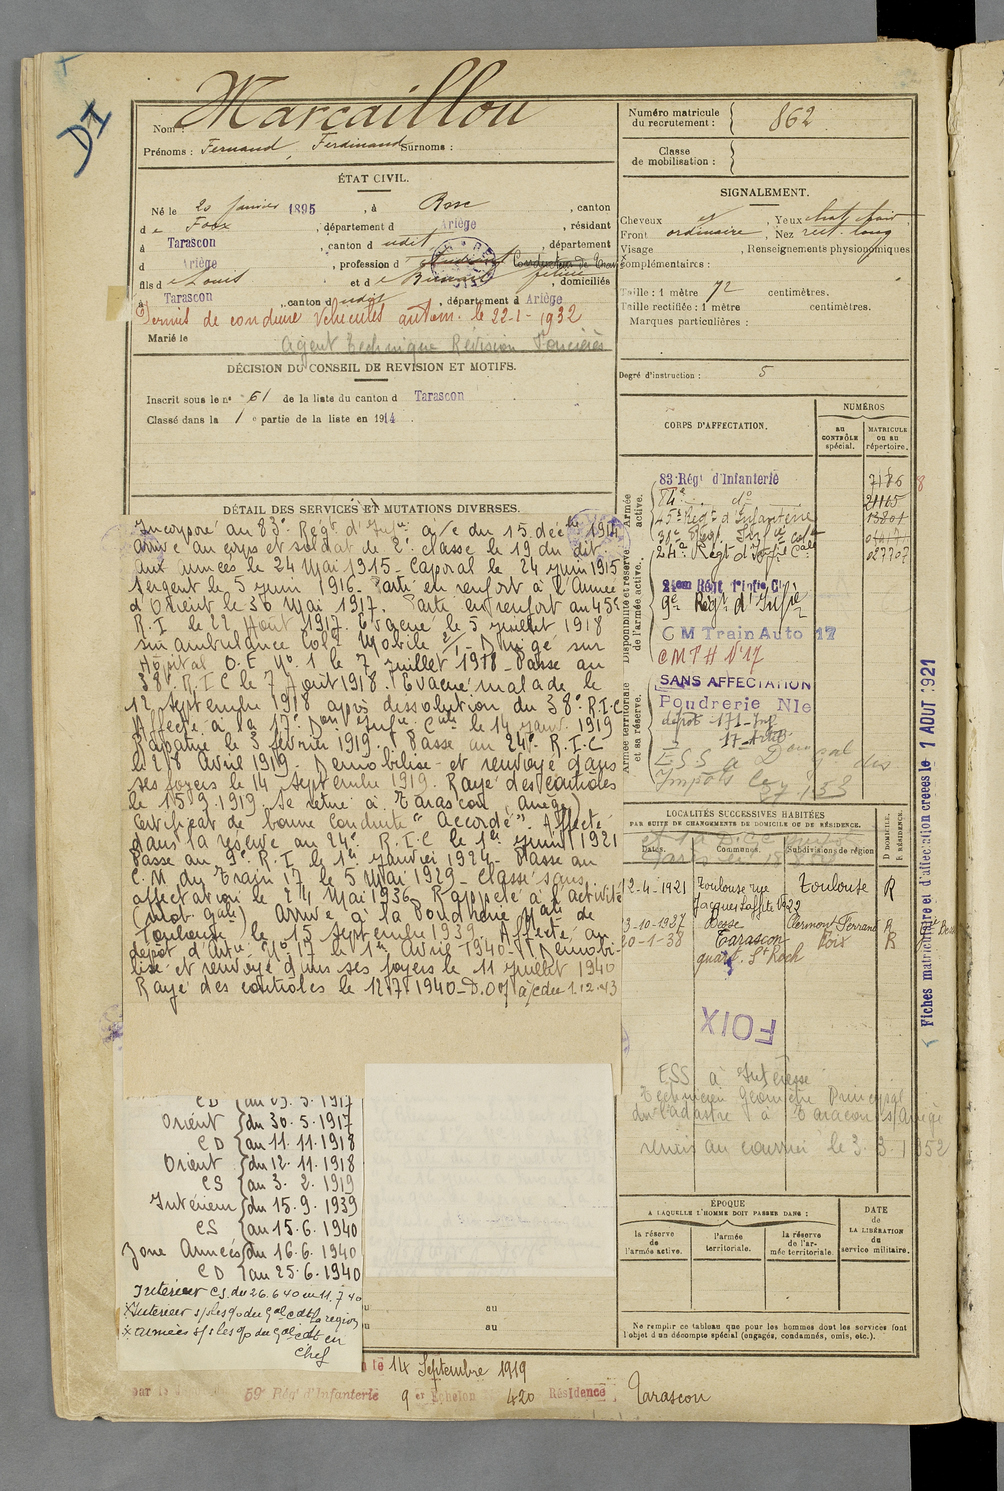 DI
Nom : Marcaillou
Prénoms : Fernand, Ferdinand Surnoms :
ÉTAT CIVIL.
Né le 20 janvier 1895, à , canton
de Foix, département d Ariège, résidant
à Tarascon, canton d udit, département
d Ariège, profession d
fils de Louis et de , domiciliés
à Tarascon, canton dudit, département d Ariège
Permis de conduire véhicules autom. le 22-1-1932
Marié le
Agent technique Révision Foncières
DÉCISION DU CONSEIL DE REVISION ET MOTIFS.
Inscrit sous le n° 61 de la liste du canton d Tarascon
Classé dans la 1e partie de la liste en 1914.
DÉTAIL DES SERVICES ET MUTATIONS DIVERSES.
Incorporé au 83e Régt d'Infie à/c du 15 décbre 1914
arrivé au corps et soldat de 2e classe le 19 du dit
aux armées le 24 Mai 1915 - Caporal le 24 juin 1915
Sergent le 5 juin 1916 - Parti en renfort à l'Armée
d'Orient le 30 Mai 1917. Parti en renfort au 45e
R.I le 22 Août 1917. Evacué le 5 juillet 1918
sur ambulance colle Mobile 2/1 - Dirigé sur
Hôpital O.E No. 1 le 7 juillet 1918 - Passé au
38e R.I.C le 7 Août 1918. Evacué malade le
12 Septembre 1918 après dissolution du 38e R.I.C
Affecté à la 17e Don Infie Cale le 14 janv. 1919
Rapatrié le 3 février 1919. Passé au 24e R.I.C
le 28 Avril 1919. Démobilisé et renvoyé dans
ses foyers le 14 Septembre 1919. Rayé des contrôles
le 15.9.1919, se retire à Tarascon (Ariège)
Certificat de bonne conduite "Accordé". Affecté
dans la réserve au 24e R.I.C le 1er juin 1921
Passé au 9e R.I. le 1er janvier 1924 - Passé au
C.M du Train 17 le 5 Mai 1929 - Classé sans
affectation le 24 Mai 1936. Rappelé à l'activité
(mob. gale) Arrivé à la Poudrerie Nale de
Toulouse le 15 Septembre 1939. Affecté au
dépôt d'Artie No 17 le 1er Avril 1940 - Démobi-
lisé et renvoyé dans ses foyers le 11 juillet 1940
Rayé des contrôles le 12.7.1940 - D.O.J. à/c du 1.12.43
CD au 29.5.1917
Orient { du 30.5.1917
CD { au 11.11.1918
Orient { du 12.11.1918
CS { au 3.2.1919
Intérieur { du 15.9.1939
CS { au 15.6.1940
Zone Armées { du 16.6.1940
CD { au 25.6.1940
Intérieur CS. du 26.6.40 au 11.7.40
x Intérieur s/ les o/ du Gal cdt la région
x armées s/ les o/ du Gal cdt en
chef
au
au
le 14 Septembre 1919
par le 59e Rég d'Infanterie 9er Echelon 420 Résidence Tarascon
Numéro matricule du recrutement : 862
Classe de mobilisation :
SIGNALEMENT.
Cheveux , Yeux chat. clair
Front ordinaire, Nez rect. long
Visage , Renseignements physionomiques
complémentaires :
Taille : 1 mètre 72 centimètres.
Taille rectifiée : 1 mètre centimètres.
Marques particulières :
Degré d'instruction : 5
CORPS D'AFFECTATION.
NUMÉROS
au CONTRÔLE spécial.
MATRICULE ou au répertoire.
Armée active.
Disponibilité et réserve de l'armée active.
Armée territoriale et sa réserve.
83 Régt d'Infanterie 7176
84e do 21165
45e Régt d'Infanterie 13801
38e Régt
24e Régt d'Infie Cale 027707
24me Régt d'Infie Cle
9e Régt d'Infie
C M Train Auto 17
CMTH N° 17
SANS AFFECTATION
Poudrerie Nle
dépôt 171 Inf
17 Artie
ESS à Principal des
Impôts le
27.1.53
LOCALITÉS SUCCESSIVES HABITÉES
PAR SUITE DE CHANGEMENTS DE DOMICILE OU DE RÉSIDENCE.
Dates. Communes. Subdivisions de région D DOMICILE. R RÉSIDENCE.
12-4-1921 Toulouse rue Jacques Laffitte No 22 Toulouse R
3-10-1937 Besse Clermont-Ferrand R
20-1-38 Tarascon quart. St Roch Foix R
FOIX
ESS à Intéressé
Technicien Géomètre Principal
du Cadastre à Tarascon s/ Ariège
remis au courrier le 3.3.1952
ÉPOQUE
A LAQUELLE L'HOMME DOIT PASSER DANS :
la réserve de l'armée active.
l'armée territoriale.
la réserve de l'armée territoriale.
DATE de LA LIBÉRATION du service militaire.
Ne remplir ce tableau que pour les hommes dont les services font
l'objet d'un décompte spécial (engagés, condamnés, omis, etc.).
Fiches matricule et d'affectation créées le 1 AOUT 1921